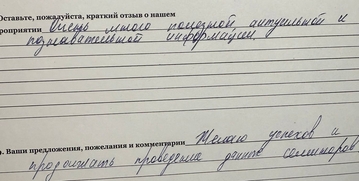 Оставьте, пожалуйста, краткий отзыв о нашем
роприятии Очень много полезной актуальной и
познавательной информации
. Ваши предложения, пожелания и комментарии Желаю успехов и
продолжать проведение данных семинаров